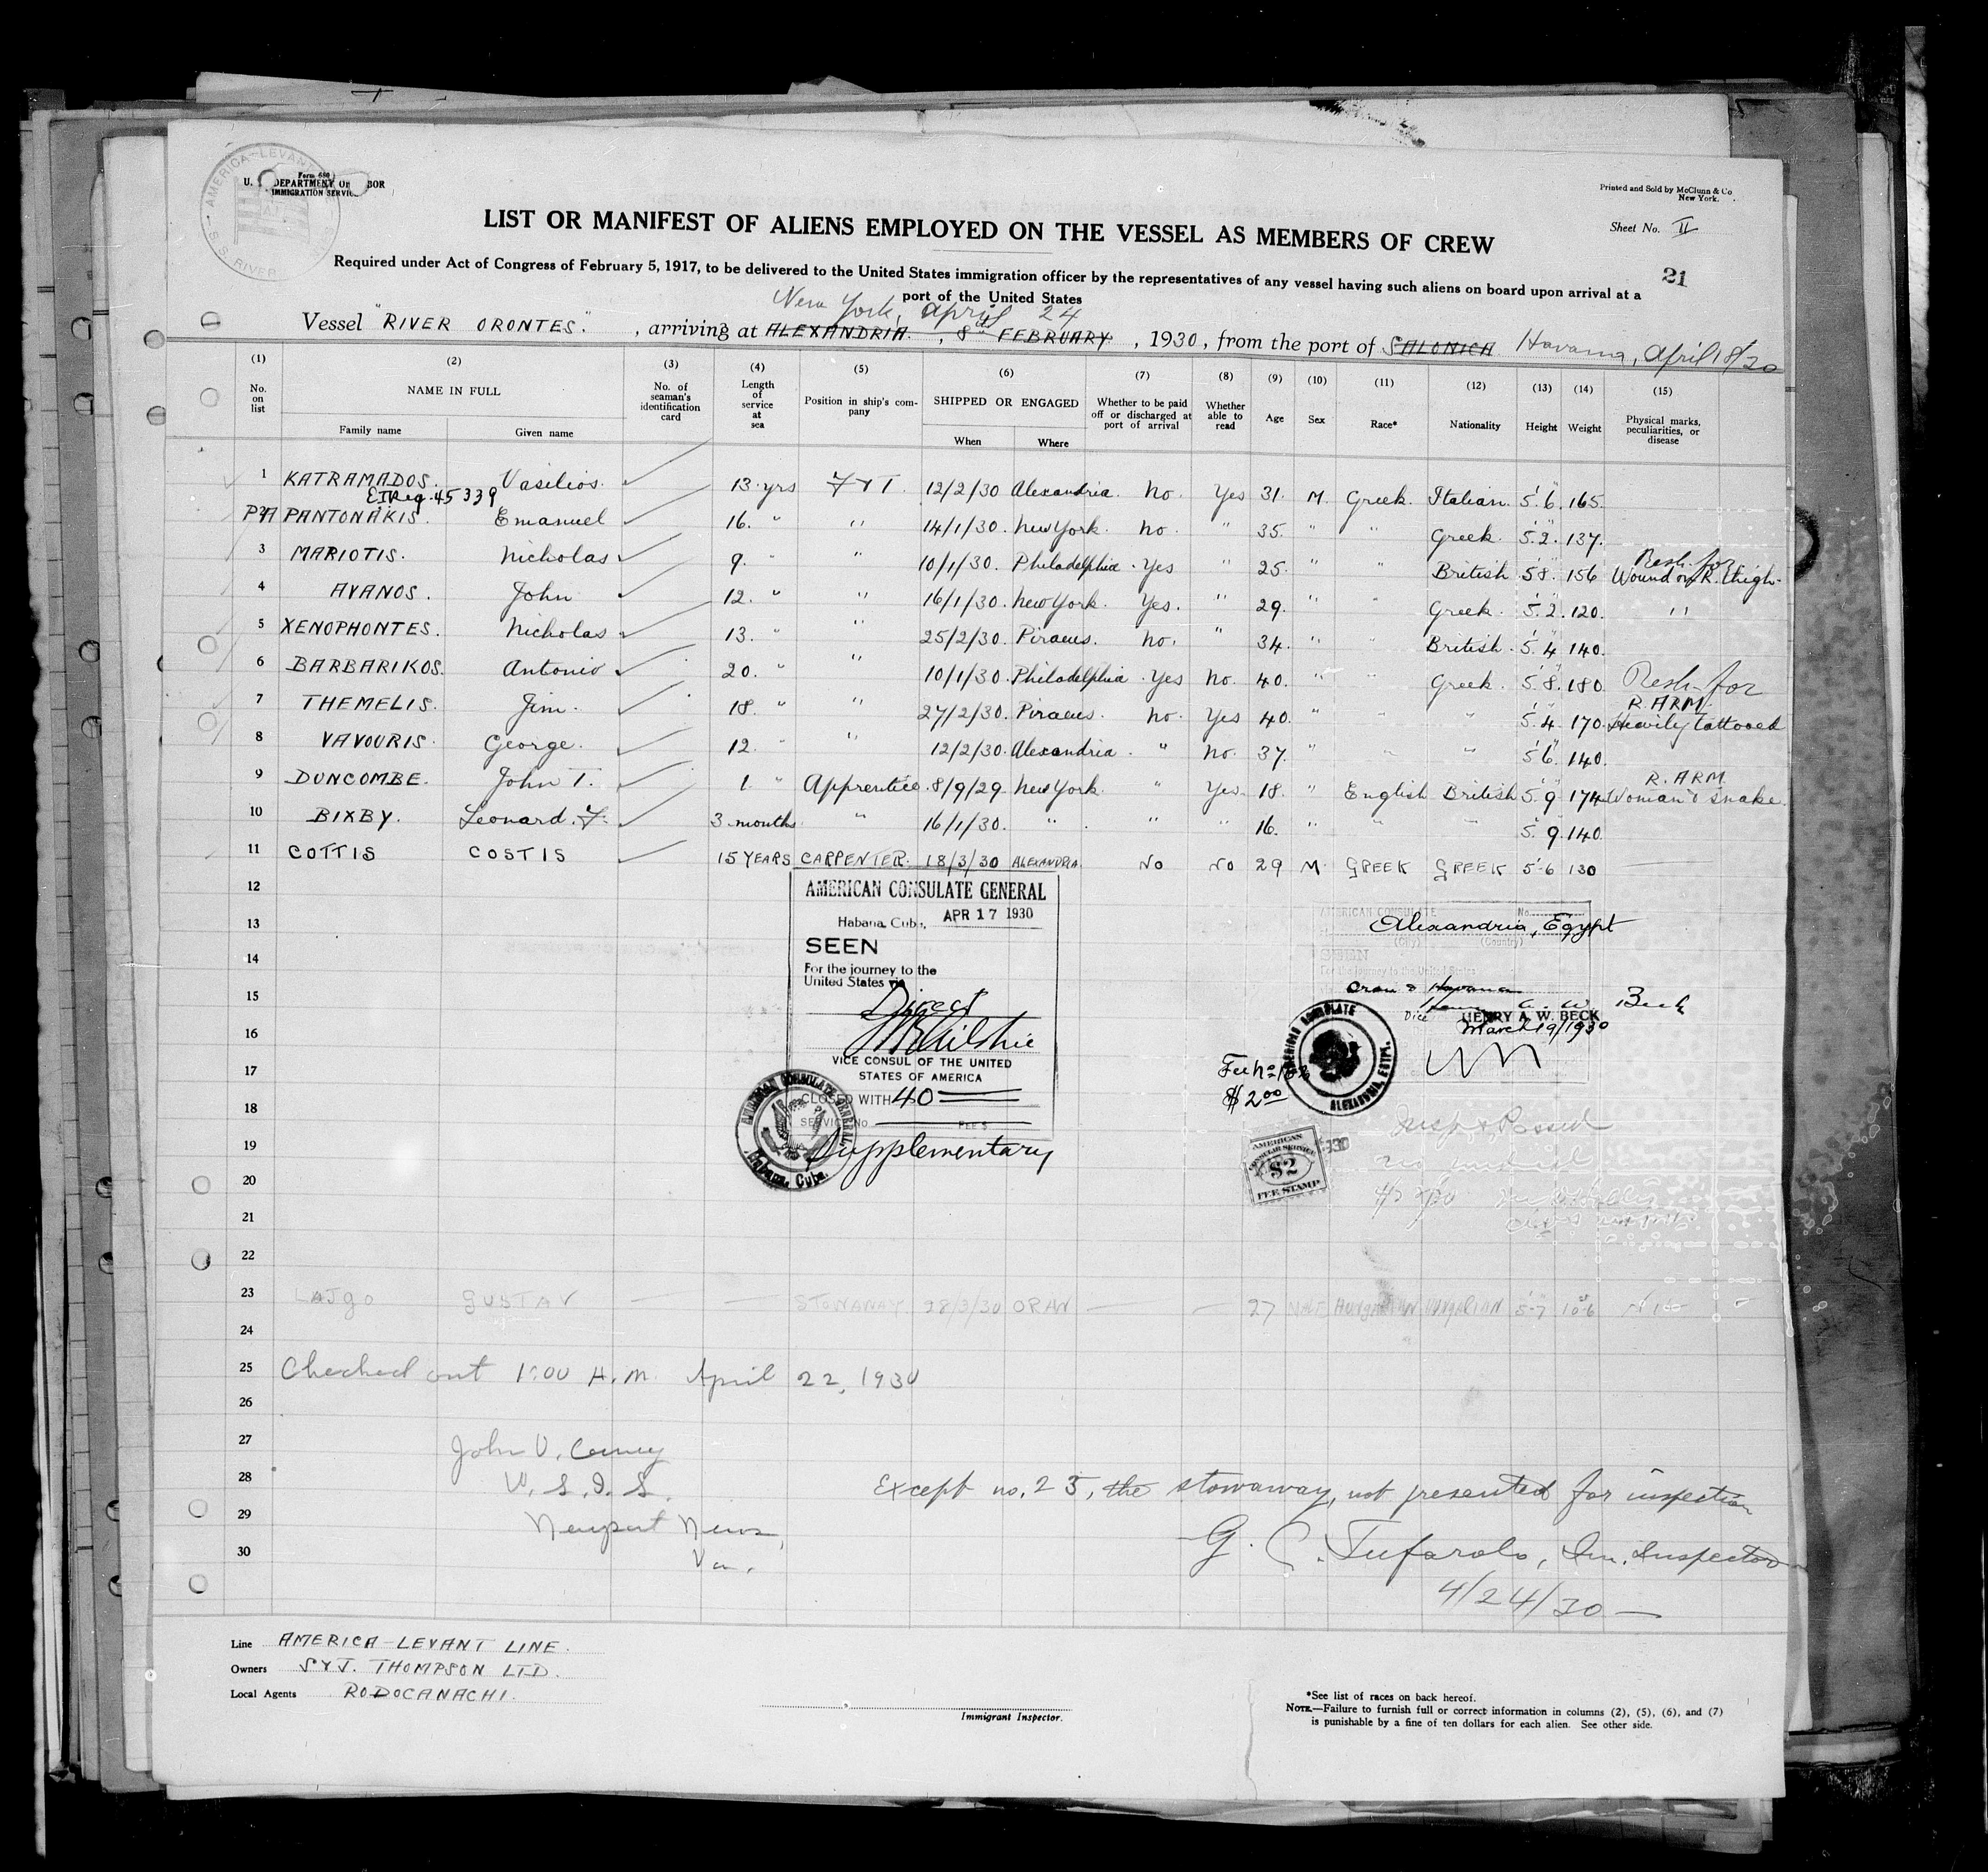 AMERICA-LEVANT
S.S. RIVER
Form 680
U. S. DEPARTMENT OF LABOR
IMMIGRATION SERVICE
Printed and Sold by McClunn & Co
New York.
Sheet No. II
LIST OR MANIFEST OF ALIENS EMPLOYED ON THE VESSEL AS MEMBERS OF CREW
Required under Act of Congress of February 5, 1917, to be delivered to the United States immigration officer by the representatives of any vessel having such aliens on board upon arrival at a
port of the United States
21
New York, April 24
Vessel "RIVER ORONTES." , arriving at ALEXANDRIA , 8th FEBRUARY , 1930, from the port of SALONICA Havana, April 18/30
(1) (2) (3) (4) (5) (6) (7) (8) (9) (10) (11) (12) (13) (14) (15)
No. on list NAME IN FULL Family name Given name No. of seaman's identification card Length of service at sea Position in ship's company SHIPPED OR ENGAGED When Where Whether to be paid off or discharged at port of arrival Whether able to read Age Sex Race* Nationality Height Weight Physical marks, peculiarities, or disease
1 KATRAMADOS. Vasilios. 13 yrs F & T. 12/2/30 Alexandria. No. Yes 31. M. Greek. Italian. 5'6" 165.
Reg. 45339
PANTONAKIS. Emanuel 16. " " 14/1/30. New York. No. " 35. " " Greek. 5'2" 137.
3 MARIOTIS. Nicholas 9. " " 10/1/30. Philadelphia. Yes " 25. " " British 5'8" 156 Wound on R. thigh.
4 AVANOS. John 12. " " 16/1/30. New York. Yes. " 29. " " Greek. 5'2" 120. "
5 XENOPHONTES. Nicholas 13. " " 25/2/30. Piraeus. No. " 34. " " British. 5'4" 140.
6 BARBARIKOS. Antonio 20. " " 10/1/30. Philadelphia. Yes No. 40. " " Greek. 5'8" 180.
7 THEMELIS. Jim. 18. " " 27/2/30. Piraeus. No. Yes 40. " " " 5'4" 170. R. ARM. Heavily tattooed
8 VAVOURIS. George. 12. " " 12/2/30. Alexandria. " No. 37. " " " 5'6" 140.
9 DUNCOMBE. John T. 1. " Apprentice. 8/9/29. New York. " Yes 18. " English British 5'9" 174 R. ARM Woman & snake.
10 BIXBY. Leonard. F. 3 months " 16/1/30. " " " 16. " " " 5'9" 140.
11 COTTIS COSTIS 15 YEARS CARPENTER. 18/3/30 ALEXANDRIA. NO NO 29 M. GREEK GREEK 5-6 130
12
AMERICAN CONSULATE GENERAL
Habana, Cuba, APR 17 1930
SEEN
For the journey to the
United States via
Direct
VICE CONSUL OF THE UNITED
STATES OF AMERICA
CLOSED WITH 40
SERVICE No FEE $
Supplementary
AMERICAN CONSULATE GENERAL. Habana, Cuba.
13
AMERICAN CONSULATE No.
Alexandria, Egypt
(City) (Country)
SEEN
For the journey to the United States
Oran & Havana
Henry A. W. Beck
Vice HENRY A. W. BECK
March 19/1930
AMERICAN CONSULATE ALEXANDRIA, EGYPT.
$2.00
AMERICAN CONSULAR SERVICE $2 FEE STAMP
14
15
16
17
18
19
20
21
22
23 LAJGO GUSTAV STOWAWAY 28/3/30 ORAN 27 MALE HUNGARIAN HUNGARIAN 5-7
24
25 Checked out 1:00 A.M. April 22, 1930
26
27 John V.
28 U.S.I.S.
Except no. 23, the stowaway, not presented for inspection
29 Newport News,
30 Va.
G. C. Tufarolo, Im. Inspector
4/24/30
Line AMERICA-LEVANT LINE.
Owners S & J. THOMPSON LTD.
Local Agents RODOCANACHI.
Immigrant Inspector.
*See list of races on back hereof.
NOTE.—Failure to furnish full or correct information in columns (2), (5), (6), and (7)
is punishable by a fine of ten dollars for each alien. See other side.